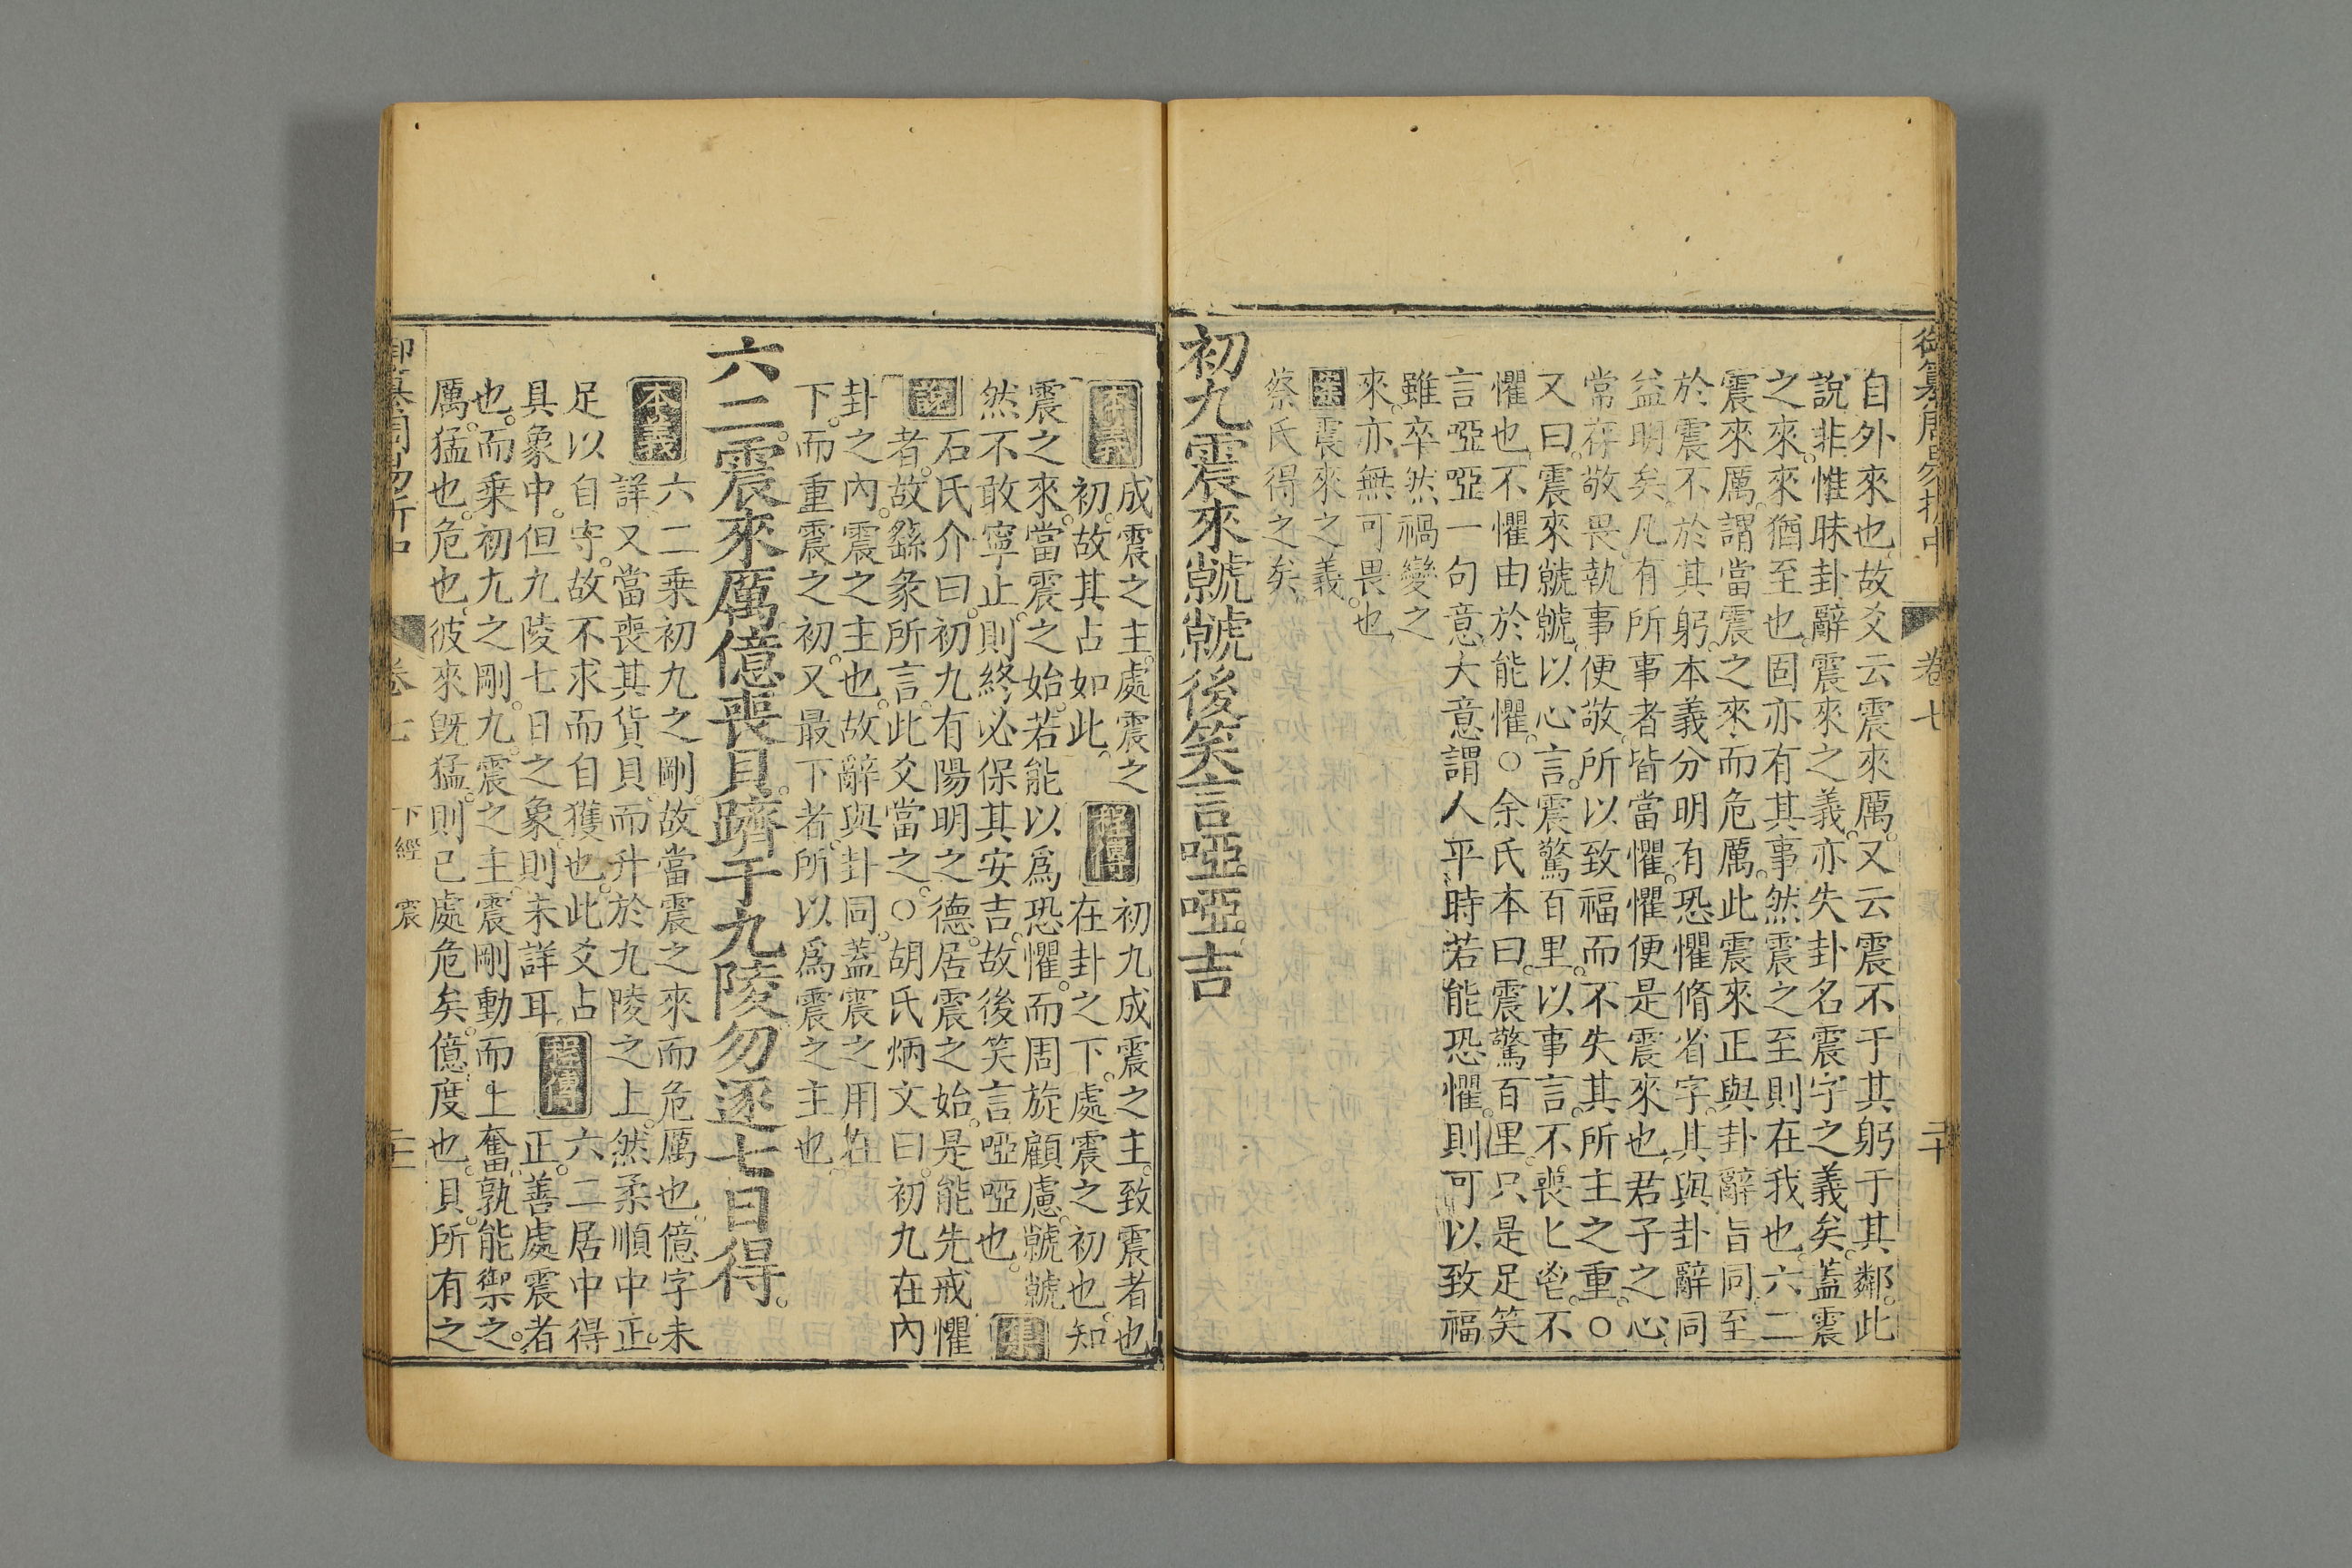 御纂周易折中 卷七 二十
自外來也故爻云震來厲又云震不于其躬于其鄰此
說非惟昧卦辭震來之義亦失卦名震字之義矣蓋震
之來來猶至也固亦有其事然震之至則在我也六二
震來厲謂當震之來而危厲此震來正與卦辭旨同至
於震不於其躬本義分明有恐懼脩省字其與卦辭同
益明矣凡有所事者皆當懼懼便是震來也君子之心
常存敬畏執事便敬所以致福而不失其所主之重○
又曰震來虩虩以心言震驚百里以事言不喪匕鬯不
懼也不懼由於能懼○余氏本曰震驚百里只是足笑
言啞啞一句意大意謂人平時若能恐懼則可以致福
雖卒然禍變之
來亦無可畏也
案震來之義
蔡氏得之矣
初九震來虩虩後笑言啞啞吉
本義 成震之主處震之
初故其占如此
程傳 初九成震之主致震者也
在卦之下處震之初也知
震之來當震之始若能以爲恐懼而周旋顧慮虩虩
然不敢寧止則終必保其安吉故後笑言啞啞也 集
說 石氏介曰初九有陽明之德居震之始是能先戒懼
者故繇彖所言此爻當之○胡氏炳文曰初九在內
卦之內震之主也故辭與卦同蓋震之用在
下而重震之初又最下者所以爲震之主也
六二震來厲億喪貝躋于九陵勿逐七日得
本義 六二乗初九之剛故當震之來而危厲也億字未
詳又當喪其貨貝而升於九陵之上然柔順中正
足以自守故不求而自獲也此爻占
具象中但九陵七日之象則未詳耳
程傳 六二居中得
正善處震者
也而乗初九之剛九震之主震剛動而上奮孰能禦之
厲猛也危也彼來旣猛則已處危矣億度也貝所有之
御纂周易折中 卷七 下經 震